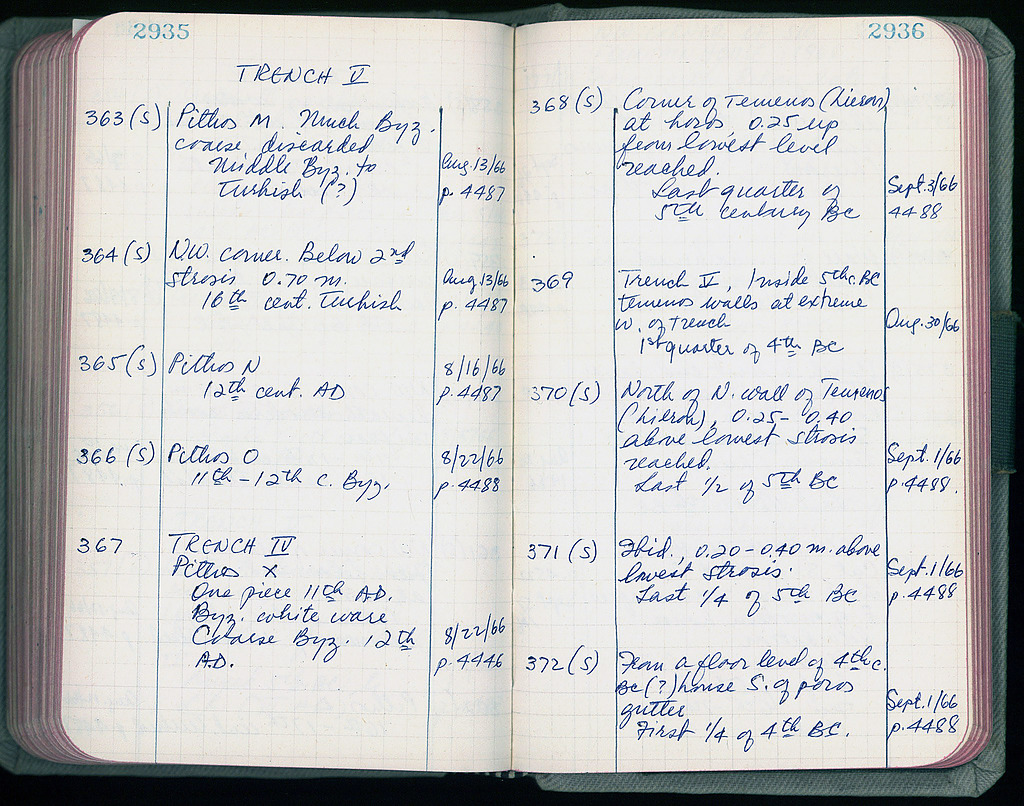 2935
TRENCH V
363 (S) Pithos M. Much Byz.
coarse discarded
Middle Byz. to
Turkish (?)
Aug. 13/66
p. 4487
364 (S) N.W. corner. Below 2nd
strosis 0.70 m.
16th cent. Turkish
Aug. 13/66
p. 4487
365 (S) Pithos N
12th cent. AD
8/16/66
p. 4487
366 (S) Pithos O
11th - 12th c. Byz.
8/22/66
p. 4488
367 TRENCH IV
Pithos X
One piece 11th AD.
Byz. white ware
Coarse Byz. 12th
AD.
8/22/66
p. 4446
2936
368 (S) Corner of Temenos (hieron)
at horos, 0.25 up
from lowest level
reached.
Last quarter of
5th century BC
Sept. 3/66
4488
369 Trench V, Inside 5th c. BC
temenos walls at extreme
W. of trench
1st quarter of 4th BC
Aug. 30/66
370 (S) North of N. wall of Temenos
(hieron), 0.25 - 0.40
above lowest strosis
reached.
Last 1/2 of 5th BC
Sept. 1/66
p. 4488.
371 (S) Ibid., 0.20 - 0.40 m. above
lowest strosis.
Last 1/4 of 5th BC
Sept. 1/66
p. 4488
372 (S) From a floor level of 4th c.
BC (?) house S. of poros
gutter
First 1/4 of 4th BC.
Sept. 1/66
p. 4488